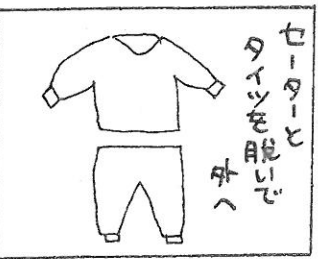 セーターと
タイツを脱いで
外へ